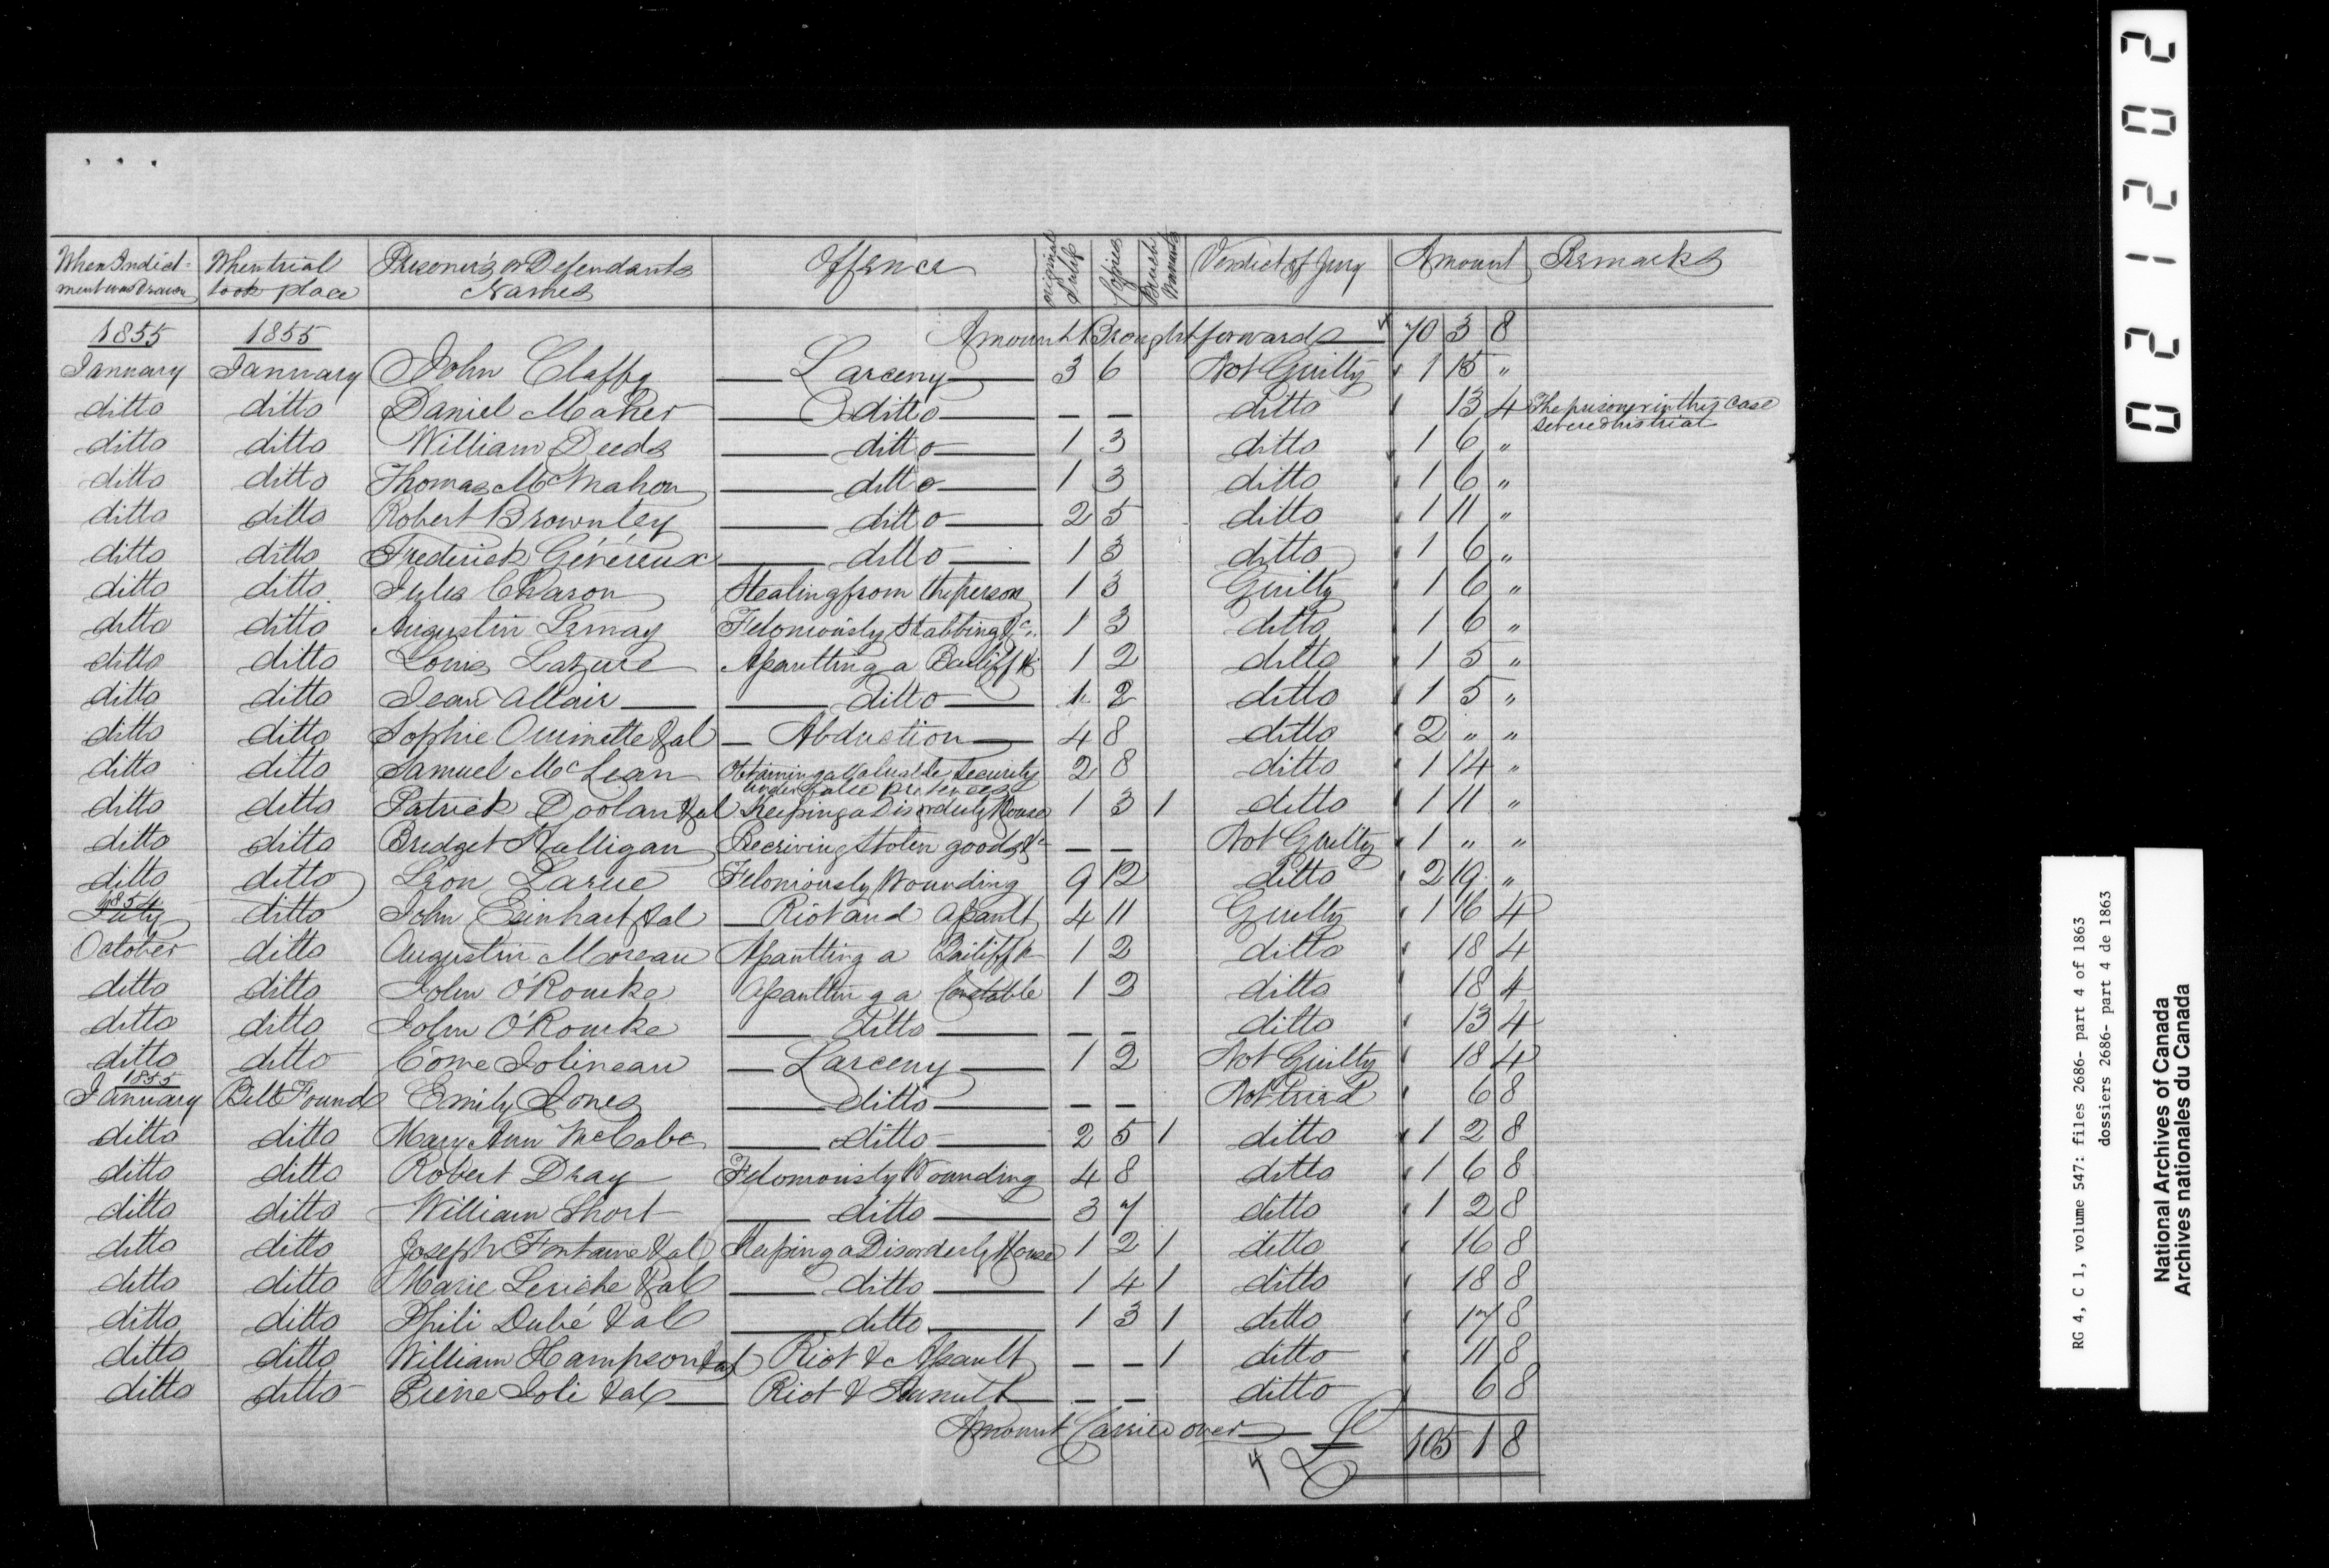 When Indict- When trial Prisoner's or Defendants Offence original Copies Bench Verdict of Jury Amount Remarks
ment was Drawn took place Names Warrants
1855 1855 Amount Brought forward 70 3 8
January January John Claffy Larceny 3 6 Not Guilty 1 15 "
ditto ditto Daniel Maher ditto — — ditto 13 4 The prisoner in this case
severed his trial
ditto ditto William Deeds ditto 1 3 ditto 1 6 "
ditto ditto Thomas McMahon ditto 1 3 ditto 1 6 "
ditto ditto Robert Brownley ditto 2 5 ditto 1 11 "
ditto ditto Frederick Généreux ditto 1 3 ditto 1 6 "
ditto ditto Jules Charon Stealing from the person 1 3 Guilty 1 6 "
ditto ditto Augustin Lemay Feloniously Stabbing &c. 1 3 ditto 1 6 "
ditto ditto Louis Lazure Assaulting a Bailiff &c 1 2 ditto 1 5 "
ditto ditto Jean Allair ditto 1 2 ditto 1 5 "
ditto ditto Sophie Ouimette & al Abduction 4 8 ditto 2 " "
ditto ditto Samuel McLean Obtaining a Valuable Security 2 8 ditto 1 14 "
under false pretences
ditto ditto Patrick Doolan & al Keeping a Disorderly House 1 3 1 ditto 1 11 "
ditto ditto Bridget Halligan Receiving Stolen goods &c — — Not Guilty 1 " "
ditto ditto Leon Larue Feloniously Wounding 9 12 ditto 2 19 "
1854
July ditto John Einhart & al Riot and Assault 4 11 Guilty 1 16 4
October ditto Augustin Moreau Assaulting a Bailiff &c 1 2 ditto 18 4
ditto ditto John O'Rourke Assaulting a Constable 1 2 ditto 18 4
ditto ditto John O'Rourke ditto — — ditto 13 4
ditto ditto Côme Jolineau Larceny 1 2 Not Guilty 18 4
1855
January Bill Found Emily Jones ditto — — Not tried 6 8
ditto ditto Mary Ann McCabe ditto 2 5 1 ditto 1 2 8
ditto ditto Robert Dray Feloniously Wounding 4 8 ditto 1 6 8
ditto ditto William Short ditto 3 7 ditto 1 2 8
ditto ditto Joseph Fontaine & al Keeping a Disorderly House 1 2 1 ditto 16 8
ditto ditto Marie Leriche & al ditto 1 4 1 ditto 18 8
ditto ditto Phili Dubé & al ditto 1 3 1 ditto 17 8
ditto ditto William Hampson & al Riot & Assault — — 1 ditto 11 8
ditto ditto Pierre Joli & al Riot & Tumult — — ditto 6 8
Amount Carried over £ 105 1 8
4
021202
RG 4, C 1, volume 547: files 2686- part 4 of 1863
dossiers 2686- part 4 de 1863
National Archives of Canada
Archives nationales du Canada